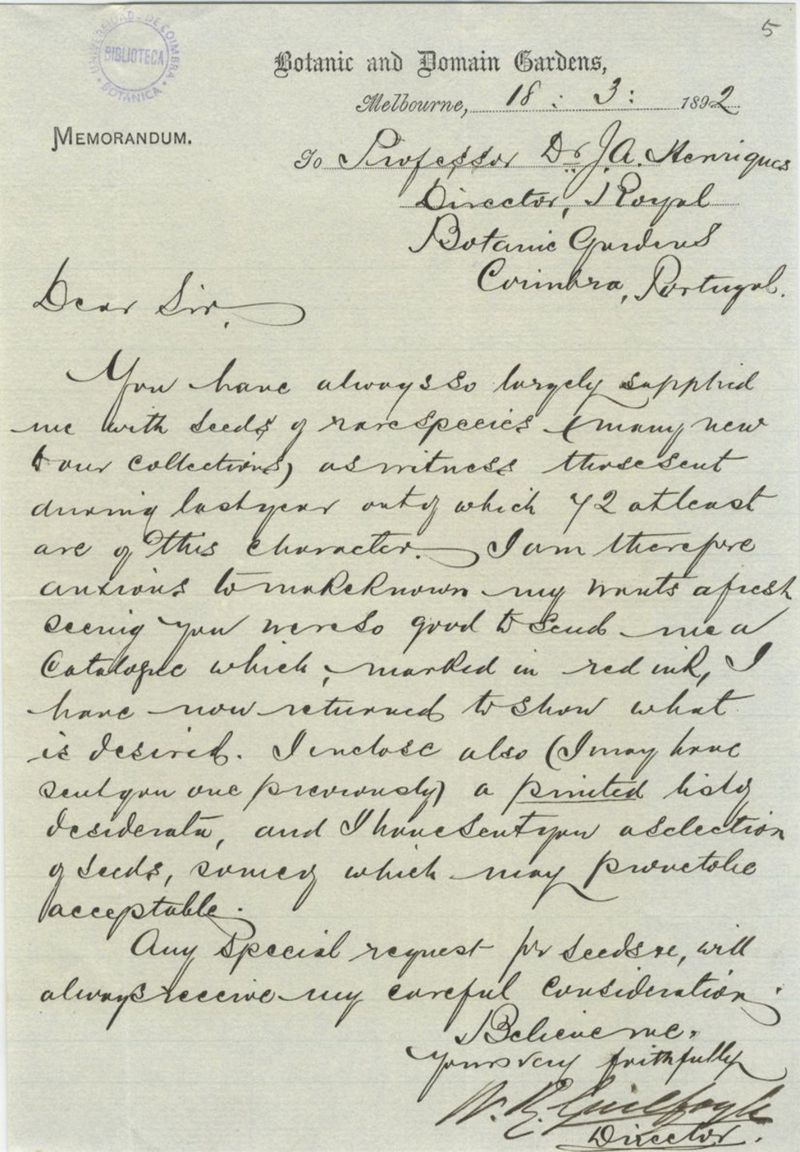 5
UNIVERSIDADE DE COIMBRA
BIBLIOTECA
BOTANICA
Botanic and Domain Gardens,
Melbourne, 18 : 3 : 1892
MEMORANDUM.
To Professor Dr. J. A. Henriques
Director, Royal
Botanic Gardens
Coimbra, Portugal.
Dear Sir,
You have always so largely supplied
me with seeds of rare species (many new
to our collections) as witness those sent
during last year out of which 72 at least
are of this character. I am therefore
anxious to make known my wants afresh
seeing you were so good to send me a
Catalogue which, marked in red ink, I
have now returned to show what
is desired. I enclose also (I may have
sent you one previously) a printed list of
desiderata, and I have sent you a selection
of seeds, some of which may prove to be
acceptable.
Any special request for seeds &c, will
always receive my careful consideration.
Believe me.
Yours very faithfully
W. R. Guilfoyle
Director.